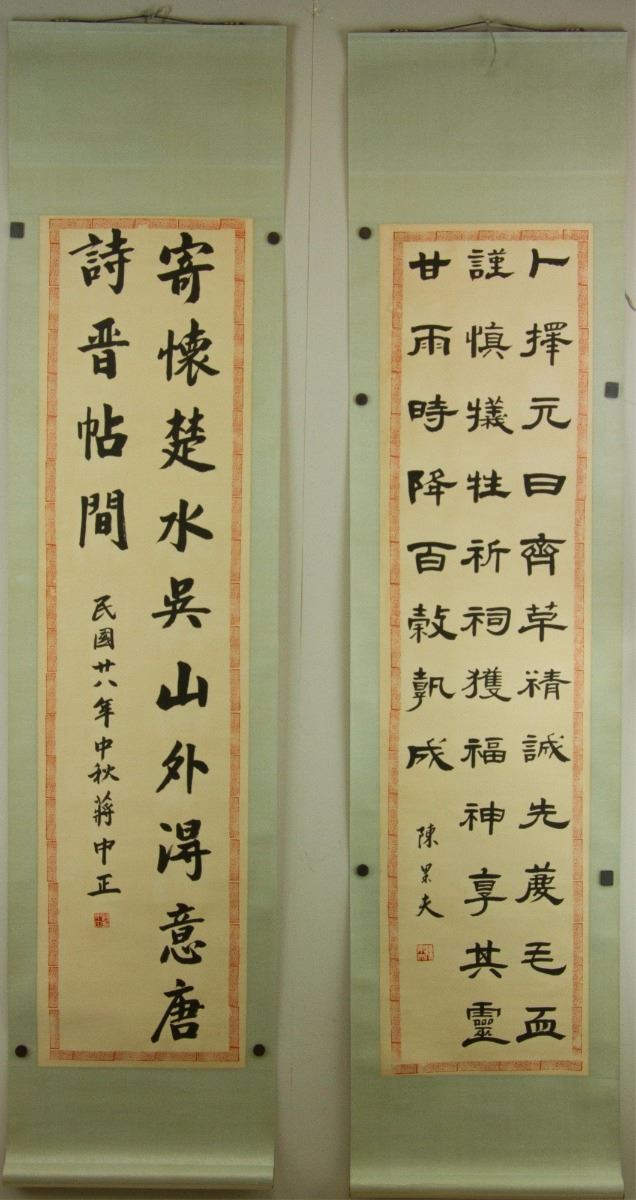 卜擇元日齊革精誠先薦毛血
謹慎犧牲祈祠獲福神享其靈
甘雨時降百穀孰成
陳果夫
寄懷楚水吳山外得意唐
詩晋帖間
民國廿八年中秋蔣中正